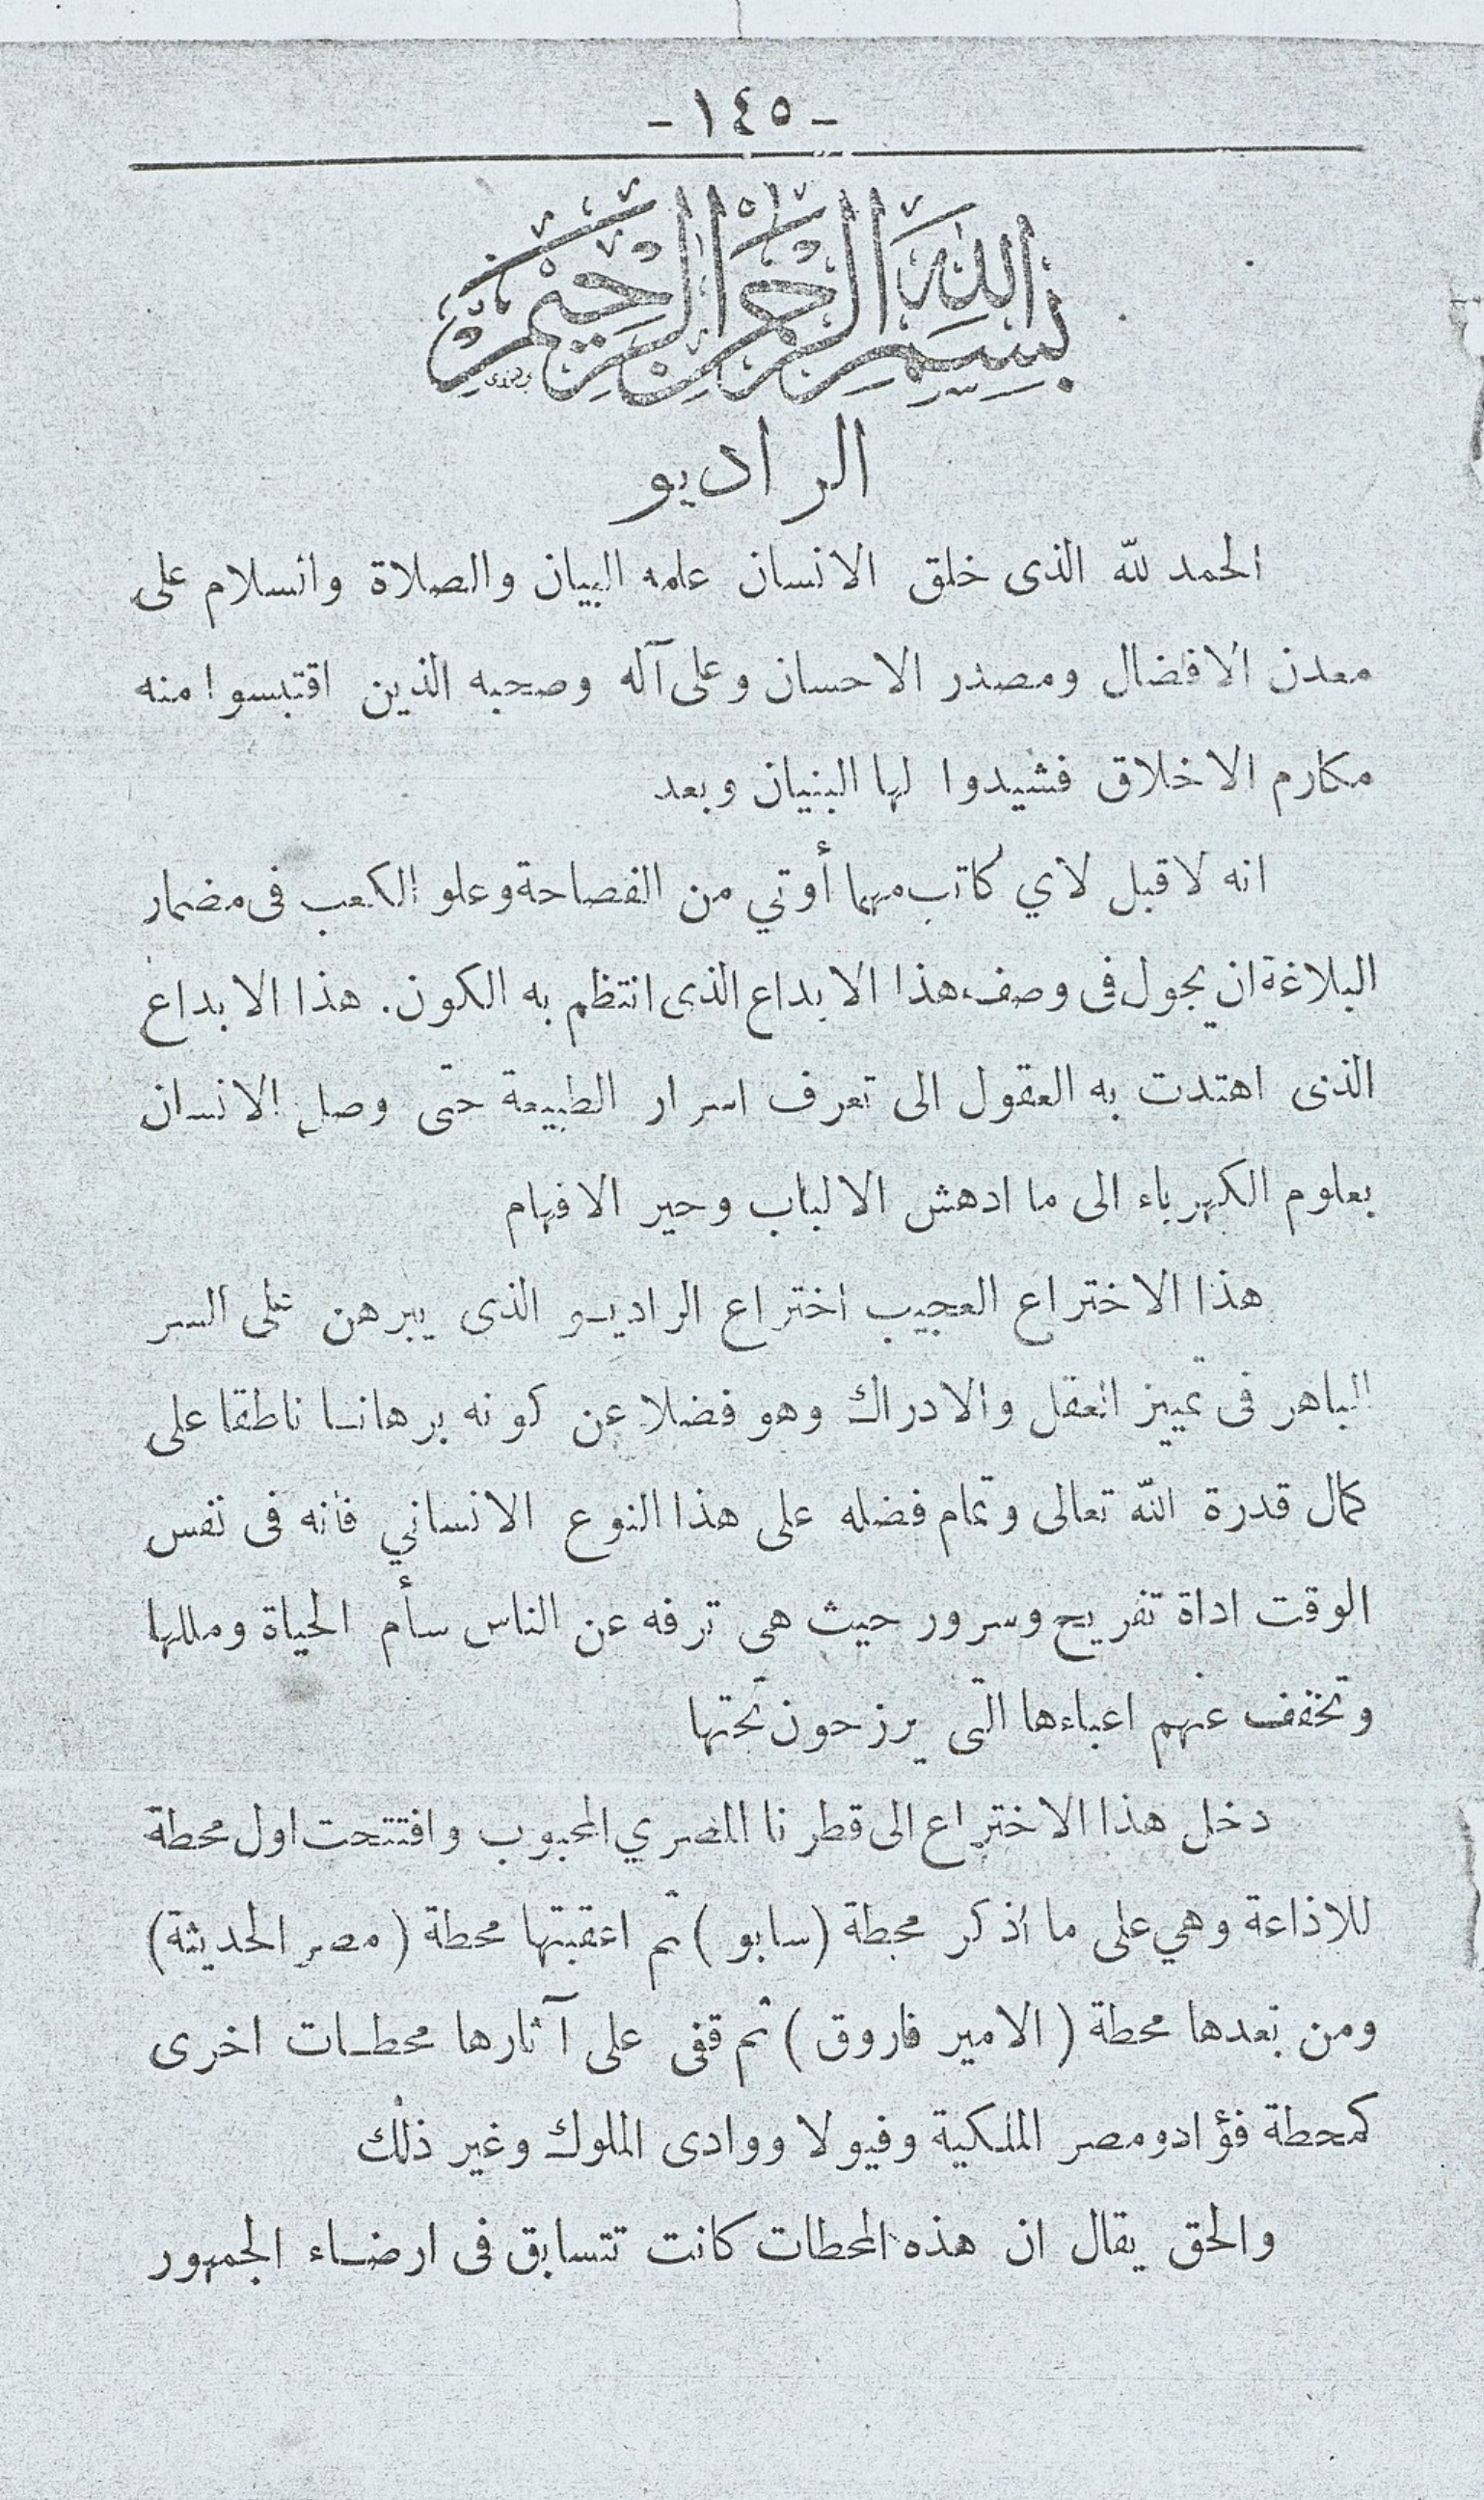 - ١٤٥ -
بسم الله الرحمن الرحيم
الراديو
الحمد لله الذى خلق الانسان علمه البيان والصلاة والسلام على
معدن الافضال ومصدر الاحسان وعلى آله وصحبه الذين اقتبسوا منه
مكارم الاخلاق فشيدوا لها البنيان وبعد
انه لا قبل لاي كاتب مهما أوتي من الفصاحة وعلو الكعب فى مضمار
البلاغة ان يجول فى وصف هذا الابداع الذى انتظم به الكون. هذا الابداع
الذى اهتدت به العقول الى تعرف اسرار الطبيعة حتى وصل الانسان
بعلوم الكهرباء الى ما ادهش الالباب وحير الافهام
هذا الاختراع العجيب اختراع الراديو الذى يبرهن على السر
الباهر فى تمييز العقل والادراك وهو فضلا عن كونه برهانا ناطقا على
كمال قدرة الله تعالى وتمام فضله على هذا النوع الانساني فانه فى نفس
الوقت اداة تفريح وسرور حيث هى ترفه عن الناس سأم الحياة ومللها
وتخفف عنهم اعباءها التى يرزحون تحتها
دخل هذا الاختراع الى قطرنا المصري المحبوب وافتتحت اول محطة
للاذاعة وهي على ما أذكر محطة (سابو) ثم اعقبتها محطة (مصر الحديثة)
ومن بعدها محطة (الامير فاروق) ثم قفى على آثارها محطات اخرى
كمحطة فؤاد ومصر الملكية وفيولا ووادى الملوك وغير ذلك
والحق يقال ان هذه المحطات كانت تتسابق فى ارضاء الجمهور